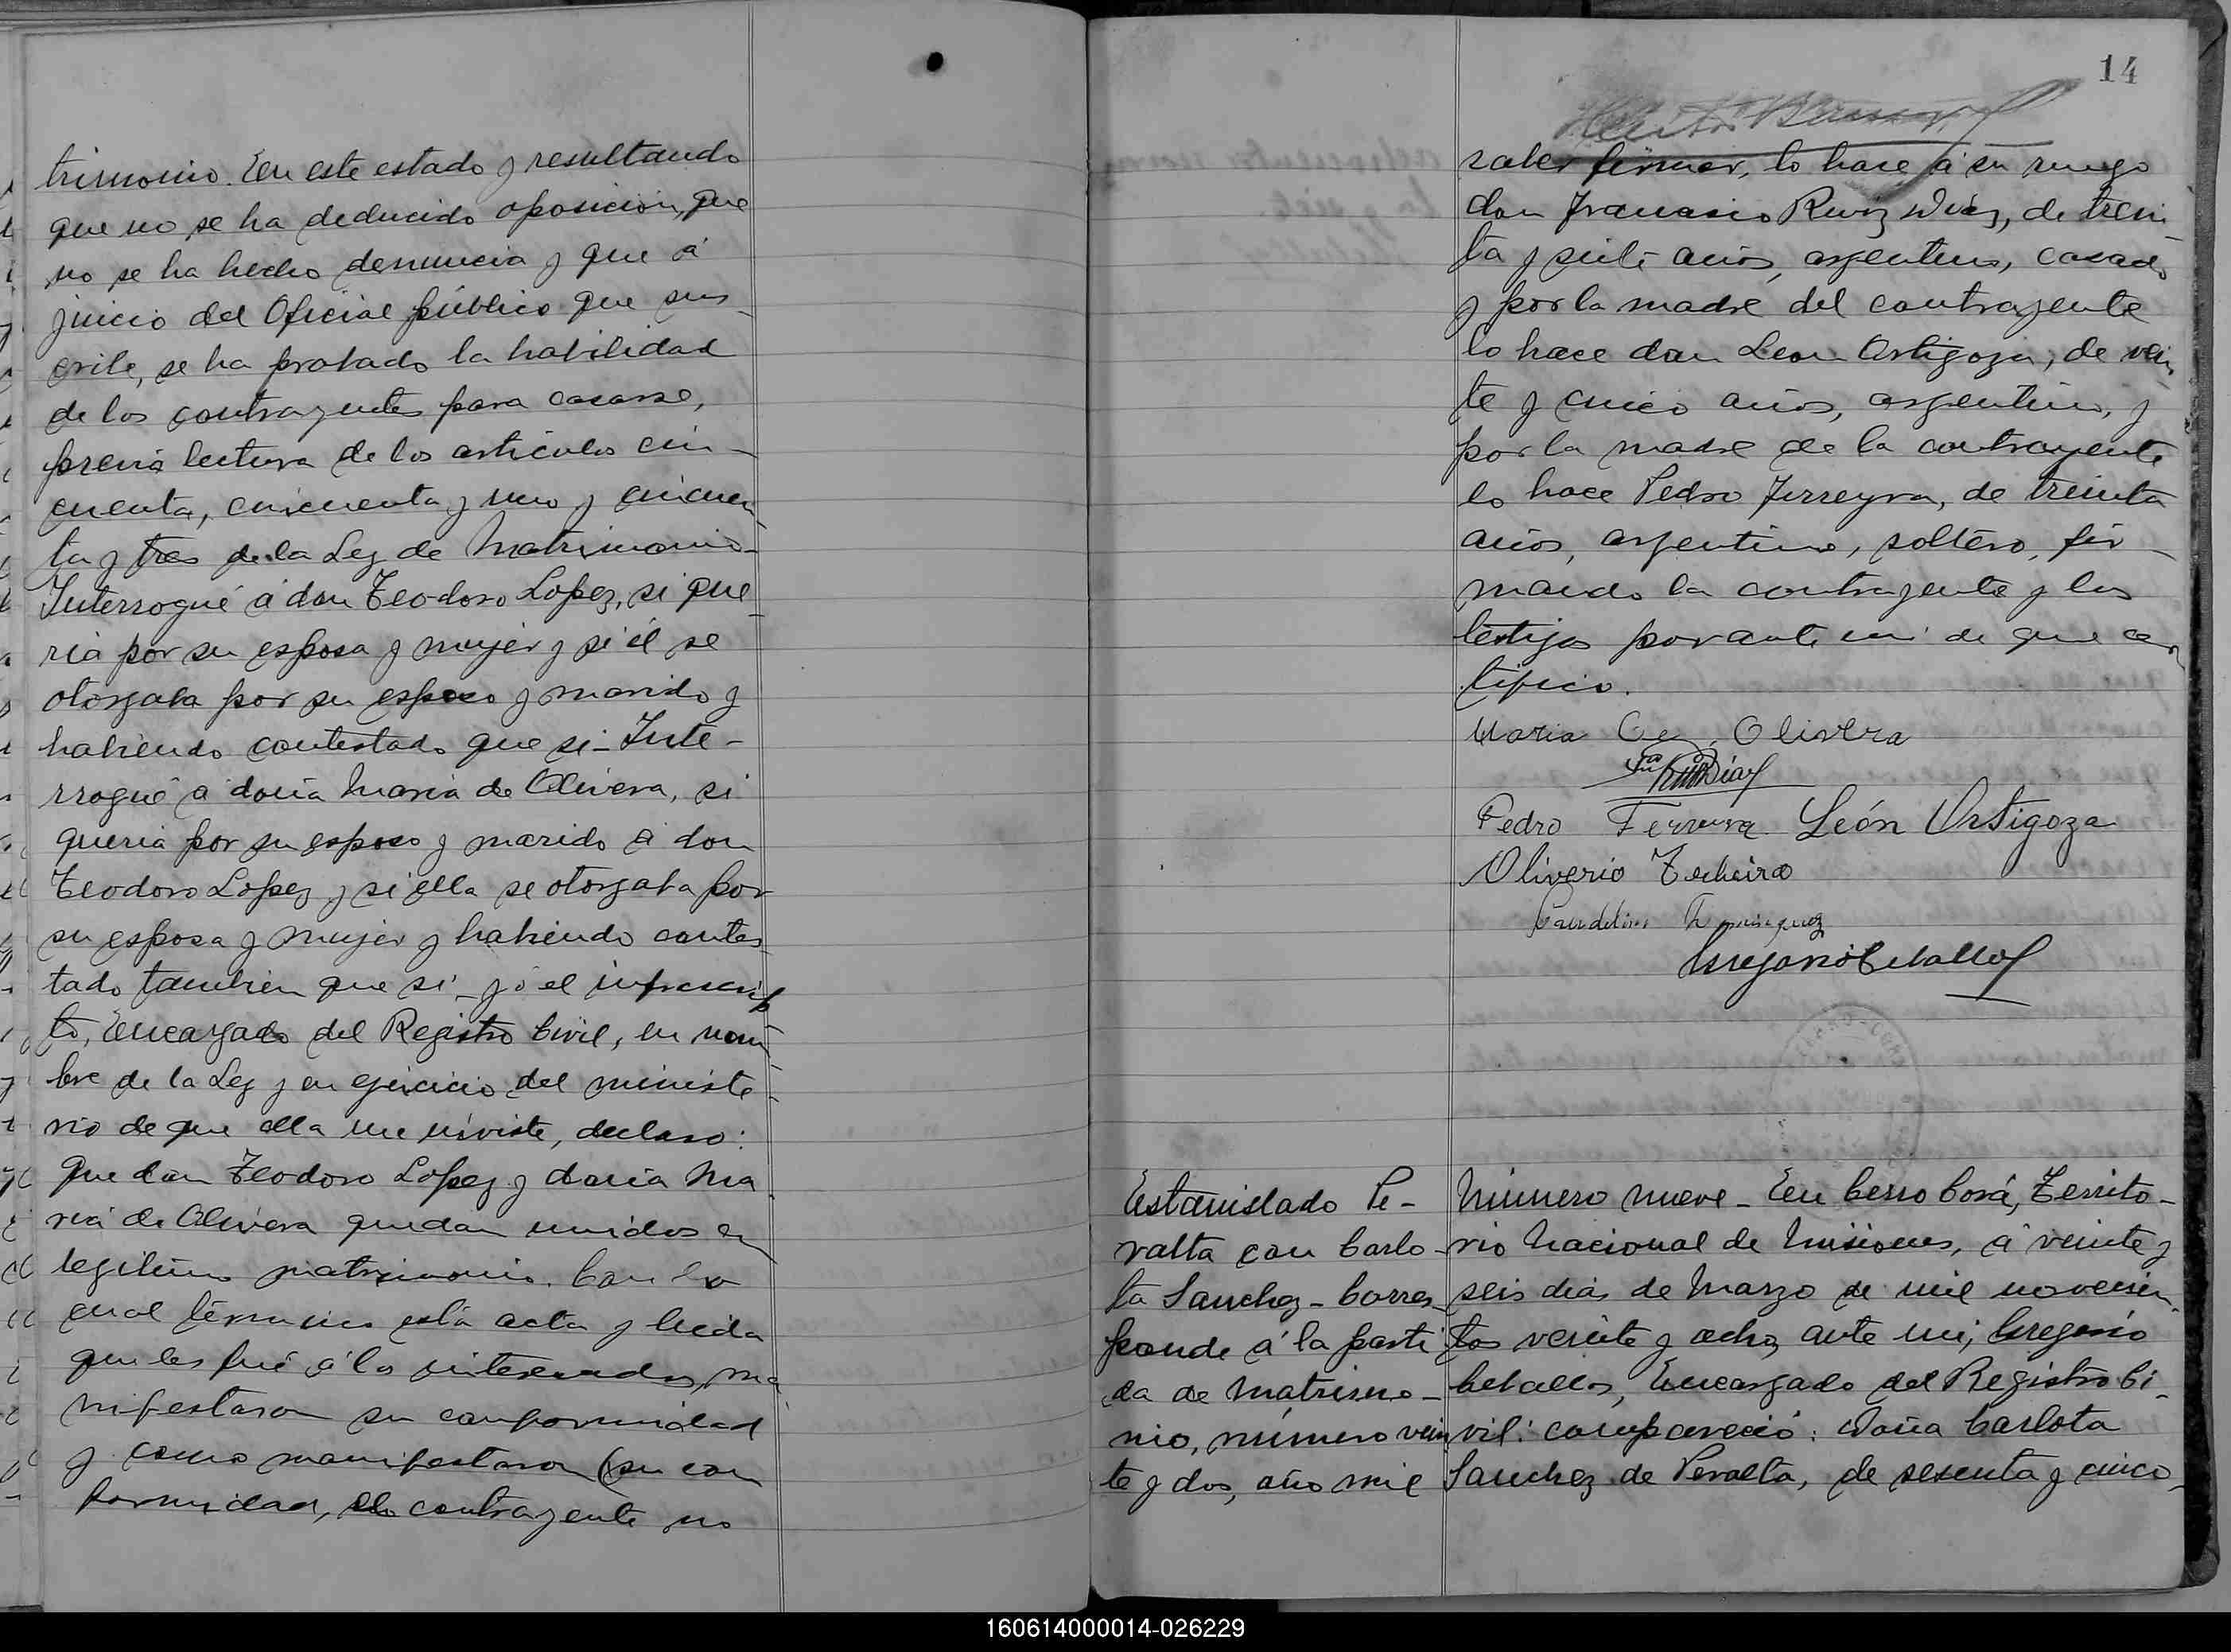 trimonio. En este estado y resultando
que no se ha deducido oposición, que
no se ha hecho denuncia y que á
juicio del Oficial público que sus-
cribe, se ha probado la habilidad
de los contrayentes para casarse,
previa lectura de los artículos cin-
cuenta, cincuenta y uno y cincuen-
ta y tres de la Ley de Matrimonio-
Interrogué á don Teodoro Lopez, si que-
ria por su esposa y mujer y si él se
otorgaba por su esposo y marido y
habiendo contestado que si- Inte-
rrogué á doña Maria de Olivera, si
queria por su esposo y marido á don
Teodoro Lopez y si ella se otorgaba por
su esposa y mujer y habiendo contes-
tado tambien que si- yo el infrascrip-
to, Encargado del Registro Civil, en nom-
bre de la Ley y en ejercicio del ministe-
rio de que ella me inviste, declaro:
que don Teodoro Lopez y doña Ma-
ria de Olivera quedan unidos en
legitimo matrimonio. Con lo
cual término esta acta y leida
que les fué á los interesados, ma-
nifestaron su conformidad
y como manifestaron (su con
formidad, el contrayente no
14
saber firmar, lo hace á su ruego
don Francisco Ruiz Diaz, de trein
ta y siete años, argentino, casado
y por la madre del contrayente
lo hace don Leon Ortigoza, de vein
te y cinco años, argentino, y
por la madre de la contrayente
lo hace Pedro Ferreyra, de treinta
años, argentino, soltero, fir-
mando la contrayente y los
testigos por ante mi de que cer
tifico.
Maria Olivera
Ruiz Diaz
Pedro Ferreira León Ortigoza
Oliverio
Gregorio Ceballos
Estanislado Pe-
ralta con Carlo-
ta Sanchez- Corres-
ponde á la parti
da de Matrimo-
nio, número vein
te y dos, año mil
Número nueve- En Cerro Corá, Territo-
rio Nacional de Misiones, á veinte y
seis dias de Marzo de mil novecien-
tos veinte y ocho, ante mi, Gregorio
Ceballos, Encargado del Registro Ci-
vil: compareció: Doña Carlota
Sanchez de Peralta, de sesenta y cinco
160614000014-026229